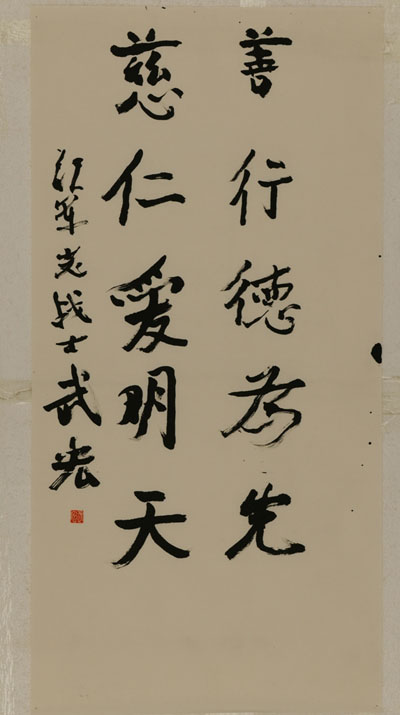 善行德为先
慈仁爱明天
红军老战士武宏